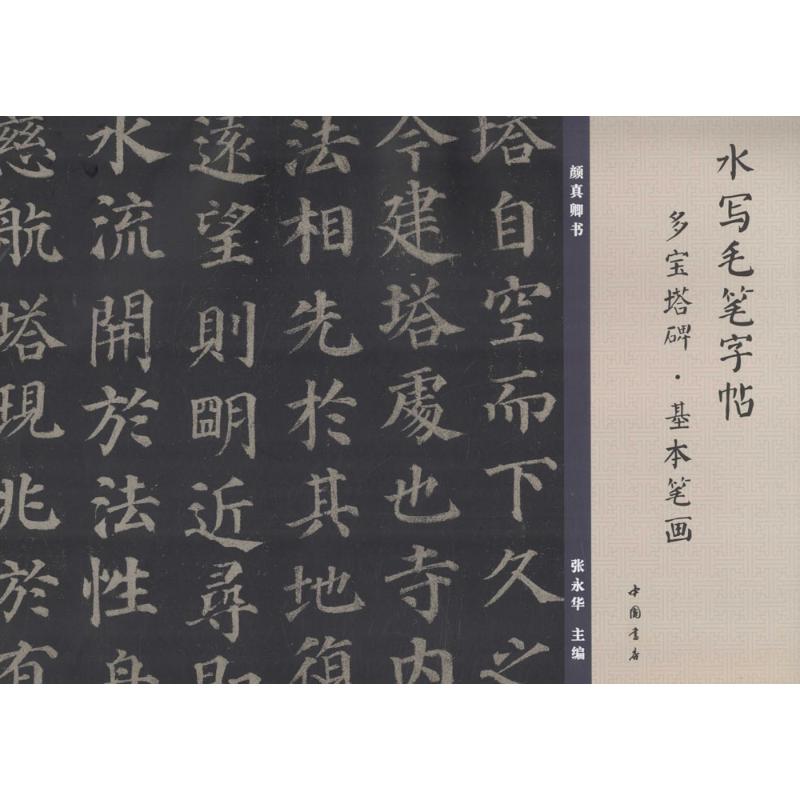 水写毛笔字帖
多宝塔碑·基本笔画
中国书店
颜真卿书
张永华 主编
塔自空而下久之
今建塔處也寺内
法相先於其地復
遠望則明近尋即
水流開於法性舟
慈航塔現兆於有